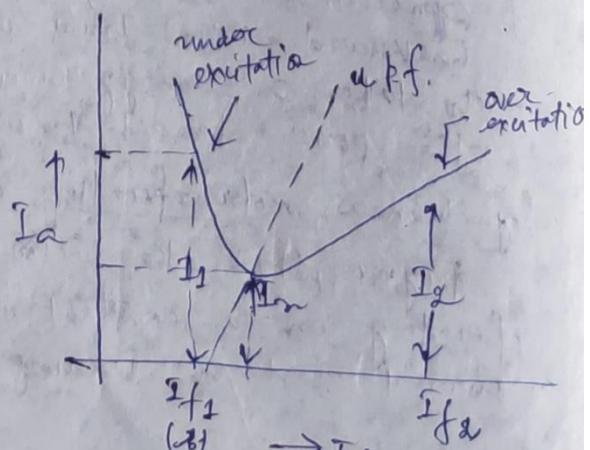 under
excitation
u p.f.
over
excitatio
Ia
I1
Im
I2
If1
If2